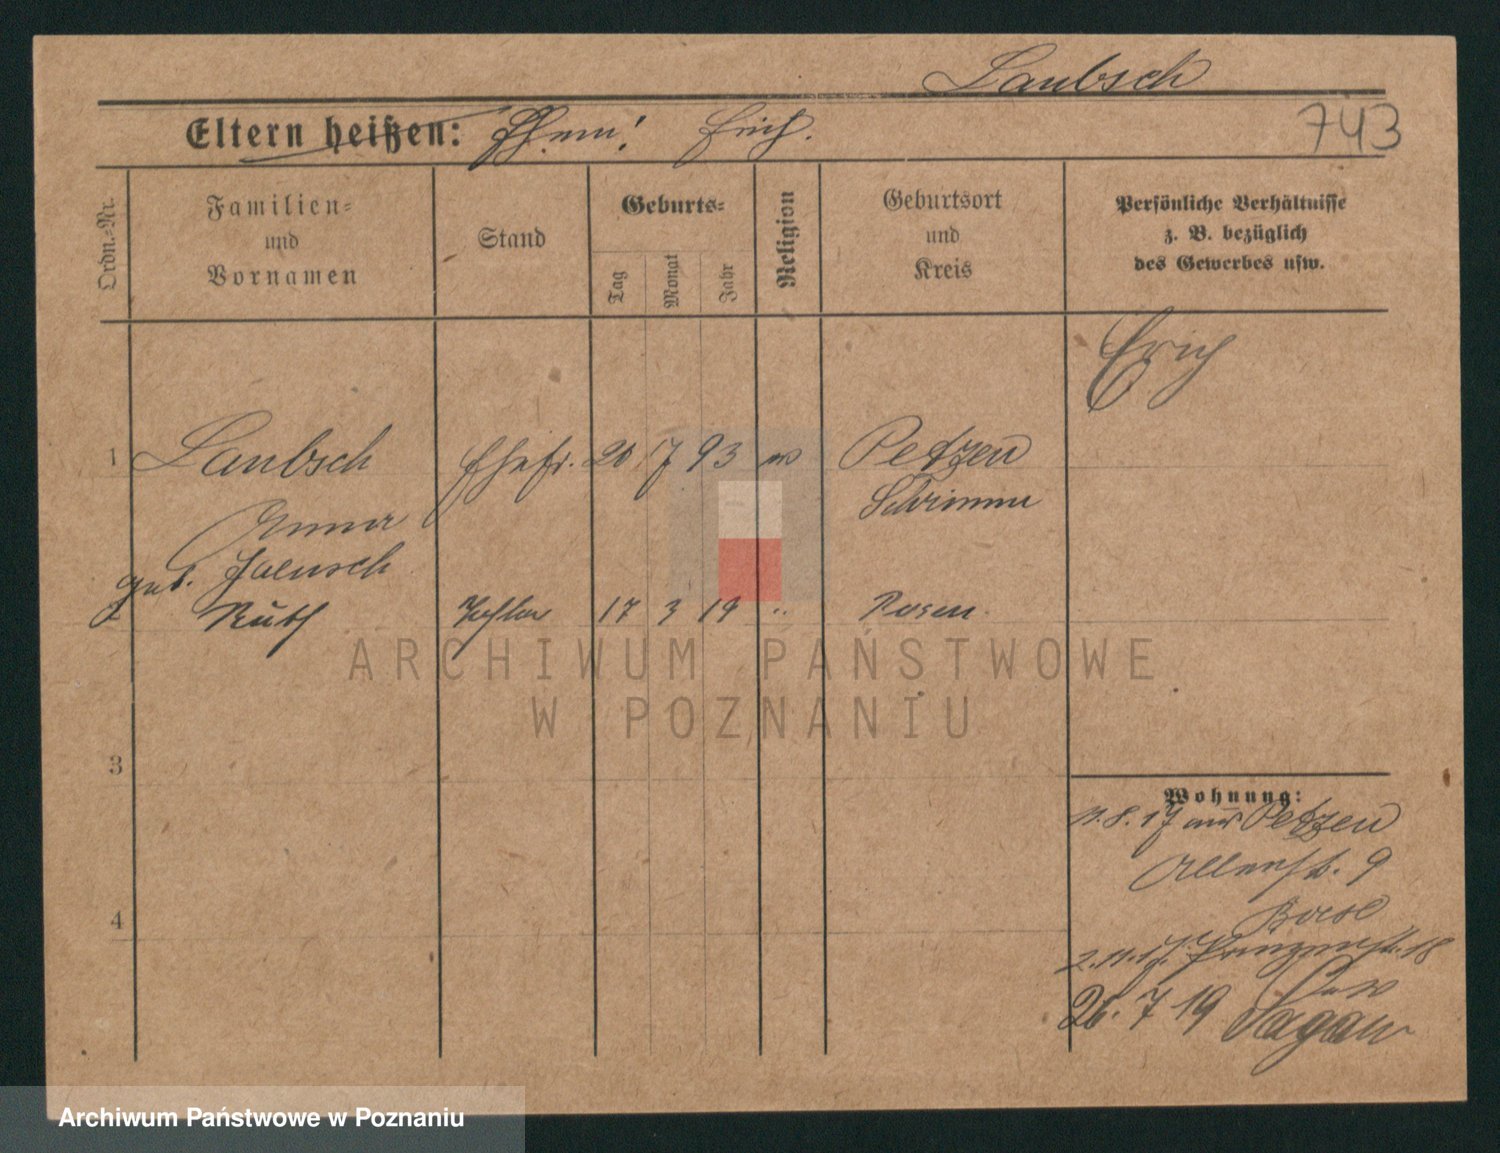 Laubsch
743
Eltern heißen: Ehem! Erich.
Ordn.-Nr.
Familien-
und
Vornamen
Stand
Geburts-
Tag
Monat
Jahr
Religion
Geburtsort
und
Kreis
Persönliche Verhältnisse
z. B. bezüglich
des Gewerbes usw.
Erich
1 Laubsch Ehefr. 20 7 93 ev Petzen
Schrimm
Anna
geb. Jaensch
2 Ruth Tochter 17 3 19 " Posen.
3
4
Wohnung:
11.8.17 aus Petzen
9
2.11.17. 18
26. 7 19 Sagan
ARCHIWUM PAŃSTWOWE
W POZNANIU
Archiwum Państwowe w Poznaniu